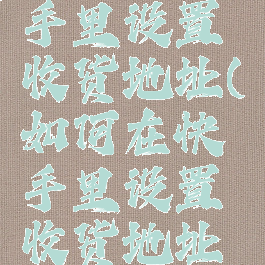 手里设置
收货地址(
如何在快
手里设置
收货地址